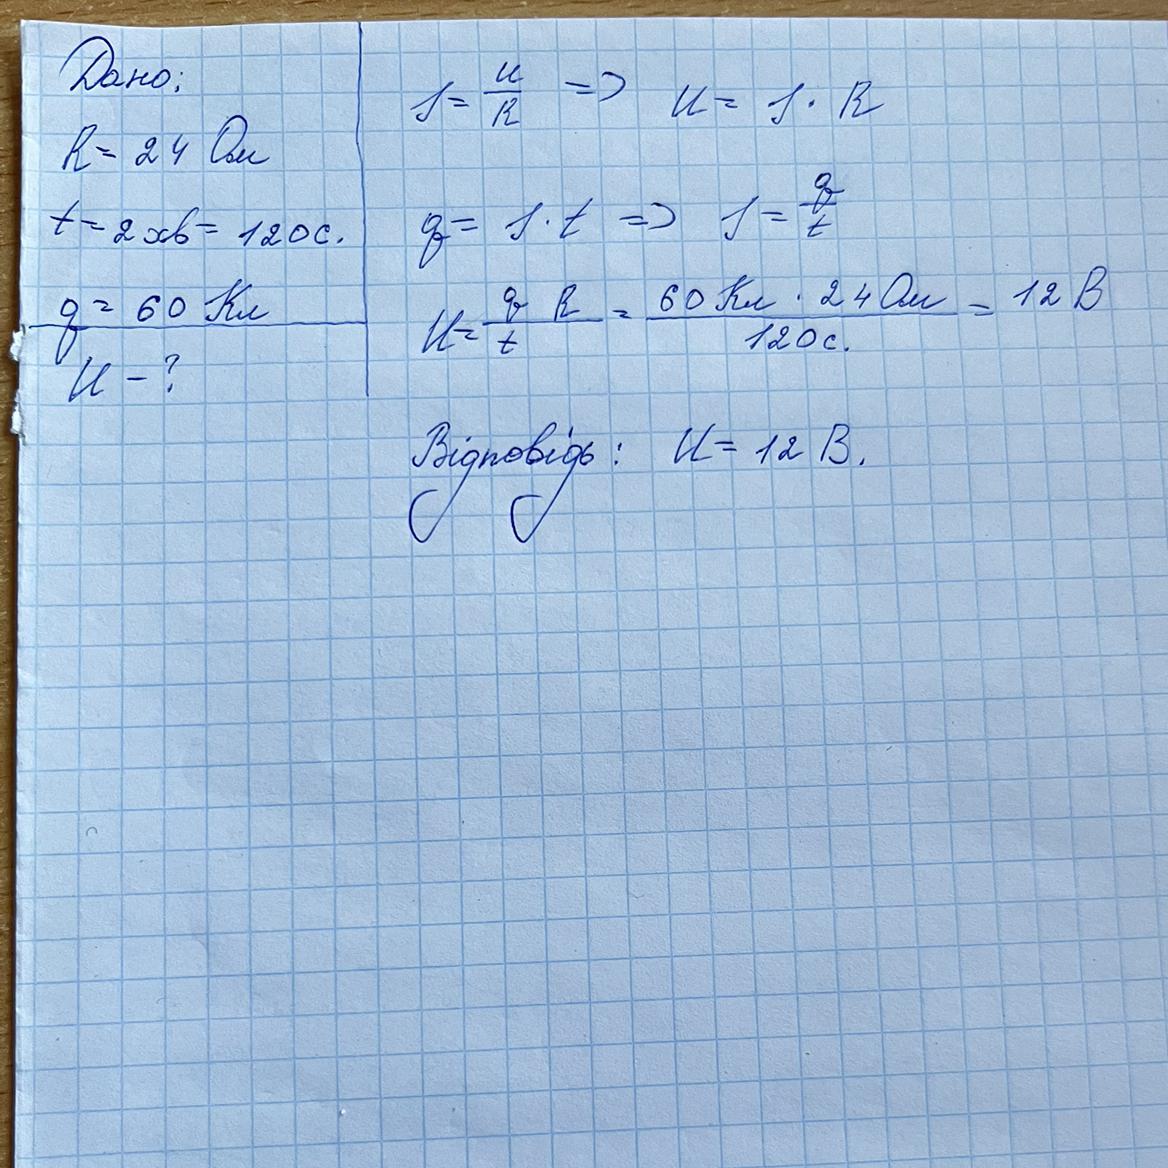 Дано:
R = 24 Ом
t = 2 хв = 120 с.
q = 60 Кл
U - ?
I = U/R => U = I · R
q = I · t => I = q/t
U = q R / t = 60 Кл · 24 Ом / 120 с. = 12 В
Відповідь: U = 12 В.